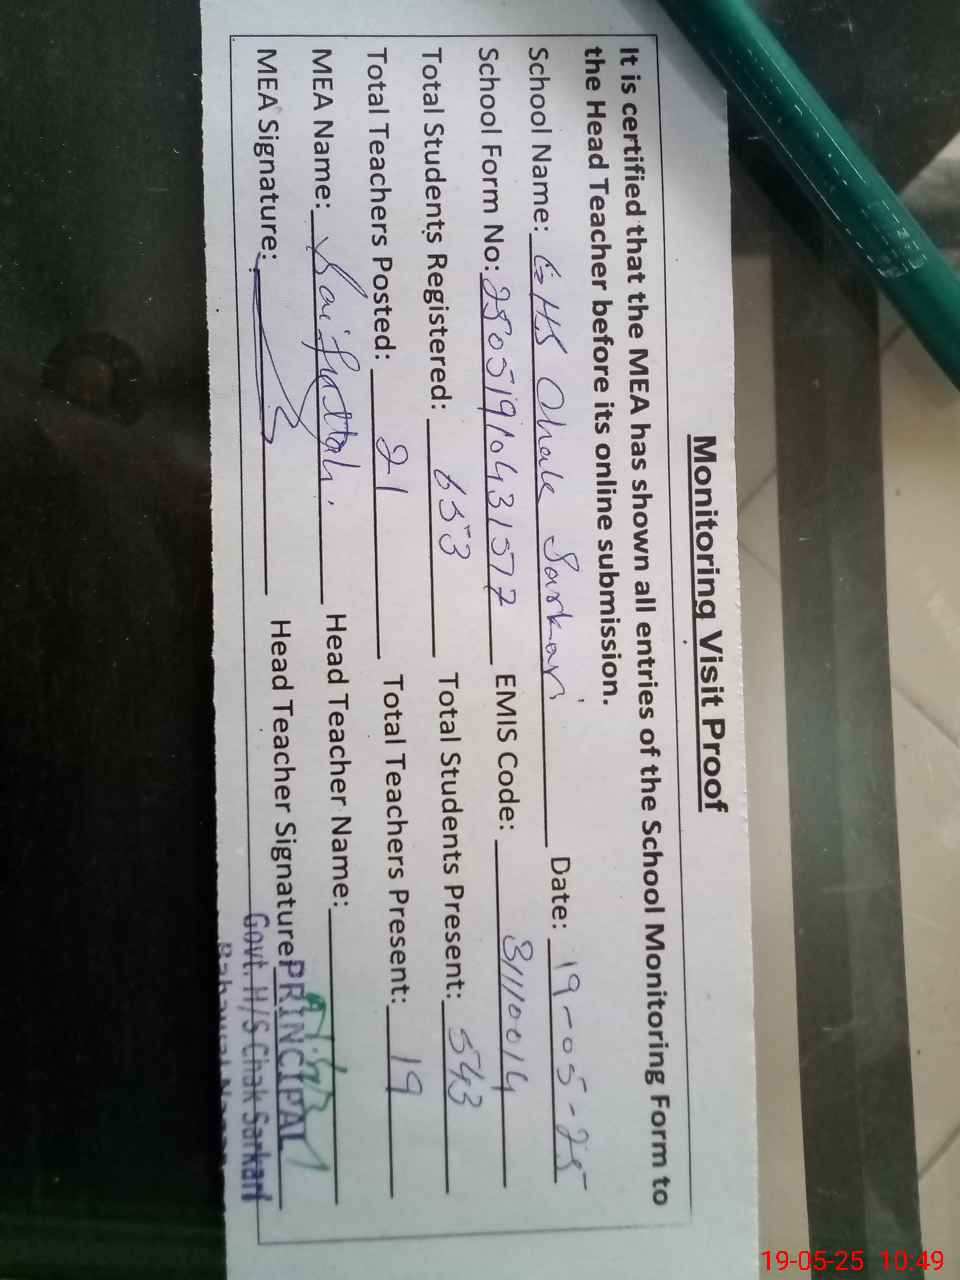 Monitoring Visit Proof
It is certified that the MEA has shown all entries of the School Monitoring Form to
the Head Teacher before its online submission.
School Name: GHS Chak Sarkari Date: 19-05-25
School Form No: 25051910431572 EMIS Code: 31110014
Total Students Registered: 653 Total Students Present: 543
Total Teachers Posted: 21 Total Teachers Present: 19
MEA Name: Saifullah. Head Teacher Name:
MEA Signature: Head Teacher Signature
PRINCIPAL
Govt. H/S Chak Sarkari
19-05-25 10:49